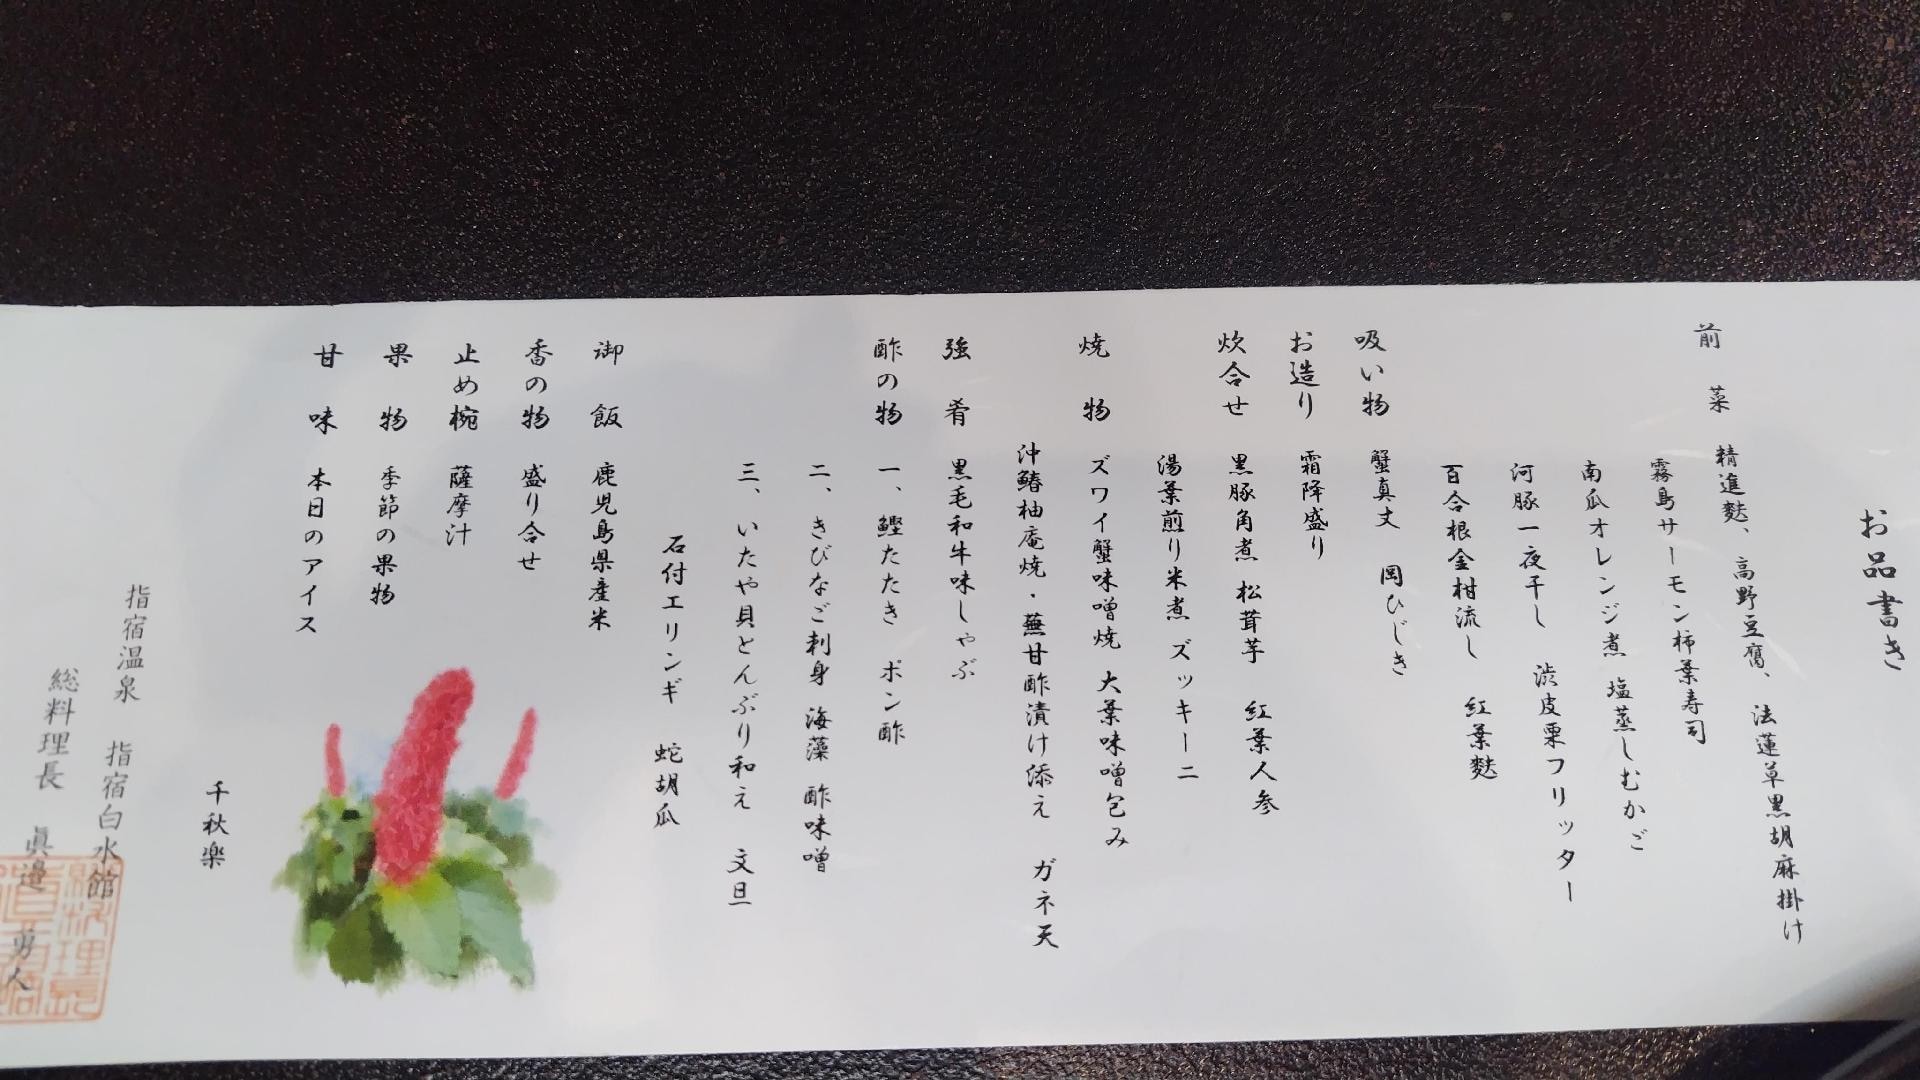 お品書き
前菜 精進麩、高野豆腐、法蓮草黒胡麻掛け
霧島サーモン柿葉寿司
南瓜オレンジ煮 塩蒸しむかご
河豚一夜干し 渋皮栗フリッター
百合根金柑流し 紅葉麩
吸い物 蟹真丈 岡ひじき
お造り 霜降盛り
炊合せ 黒豚角煮 松茸芋 紅葉人参
湯葉煎り米煮 ズッキーニ
焼物 ズワイ蟹味噌焼 大葉味噌包み
沖鰆柚庵焼・蕪甘酢漬け添え ガネ天
強肴 黒毛和牛味しゃぶ
酢の物 一、鰹たたき ポン酢
二、きびなご刺身 海藻 酢味噌
三、いたや貝とんぶり和え 文旦
石付エリンギ 蛇胡瓜
御飯 鹿児島県産米
香の物 盛り合せ
止め椀 薩摩汁
果物 季節の果物
甘味 本日のアイス
千秋楽
指宿温泉 指宿白水館
総料理長 眞邉 勇人